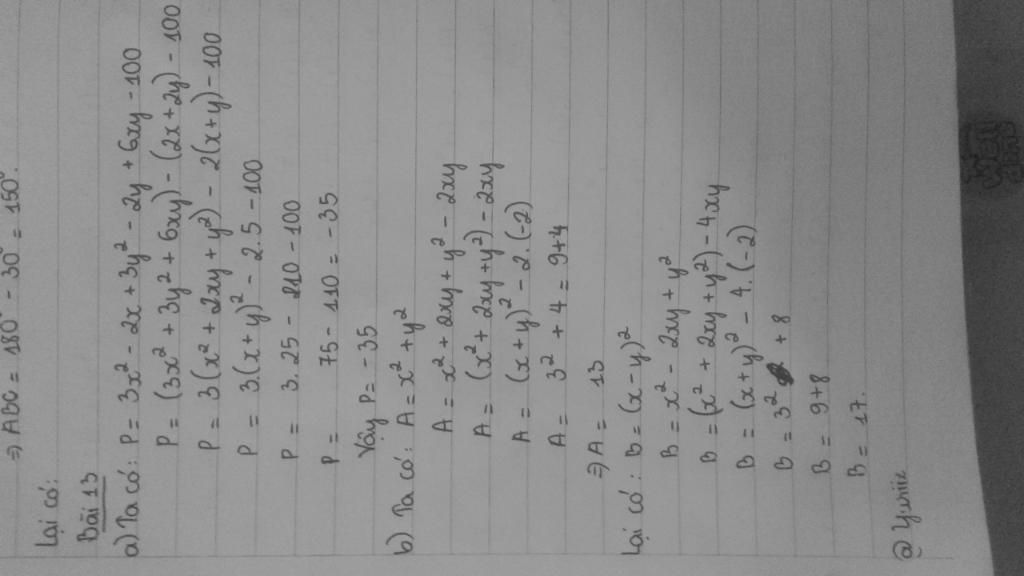 ⇒ ABC = 180° - 30° = 150°.
Lại có:
Bài 13
a) Ta có: P = 3x² - 2x + 3y² - 2y + 6xy - 100
P = (3x² + 3y² + 6xy) - (2x + 2y) - 100
P = 3(x² + 2xy + y²) - 2(x + y) - 100
P = 3(x + y)² - 2.5 - 100
P = 3.25 - 210 - 100
P = 75 - 110 = -35
Vậy P = -35
b) Ta có: A = x² + y²
A = x² + 2xy + y² - 2xy
A = (x² + 2xy + y²) - 2xy
A = (x + y)² - 2.(-2)
A = 3² + 4 = 9+4
⇒ A = 13
Lại có: B = (x - y)²
B = x² - 2xy + y²
B = (x² + 2xy + y²) - 4xy
B = (x + y)² - 4.(-2)
B = 3² + 8
B = 9+8
B = 17.